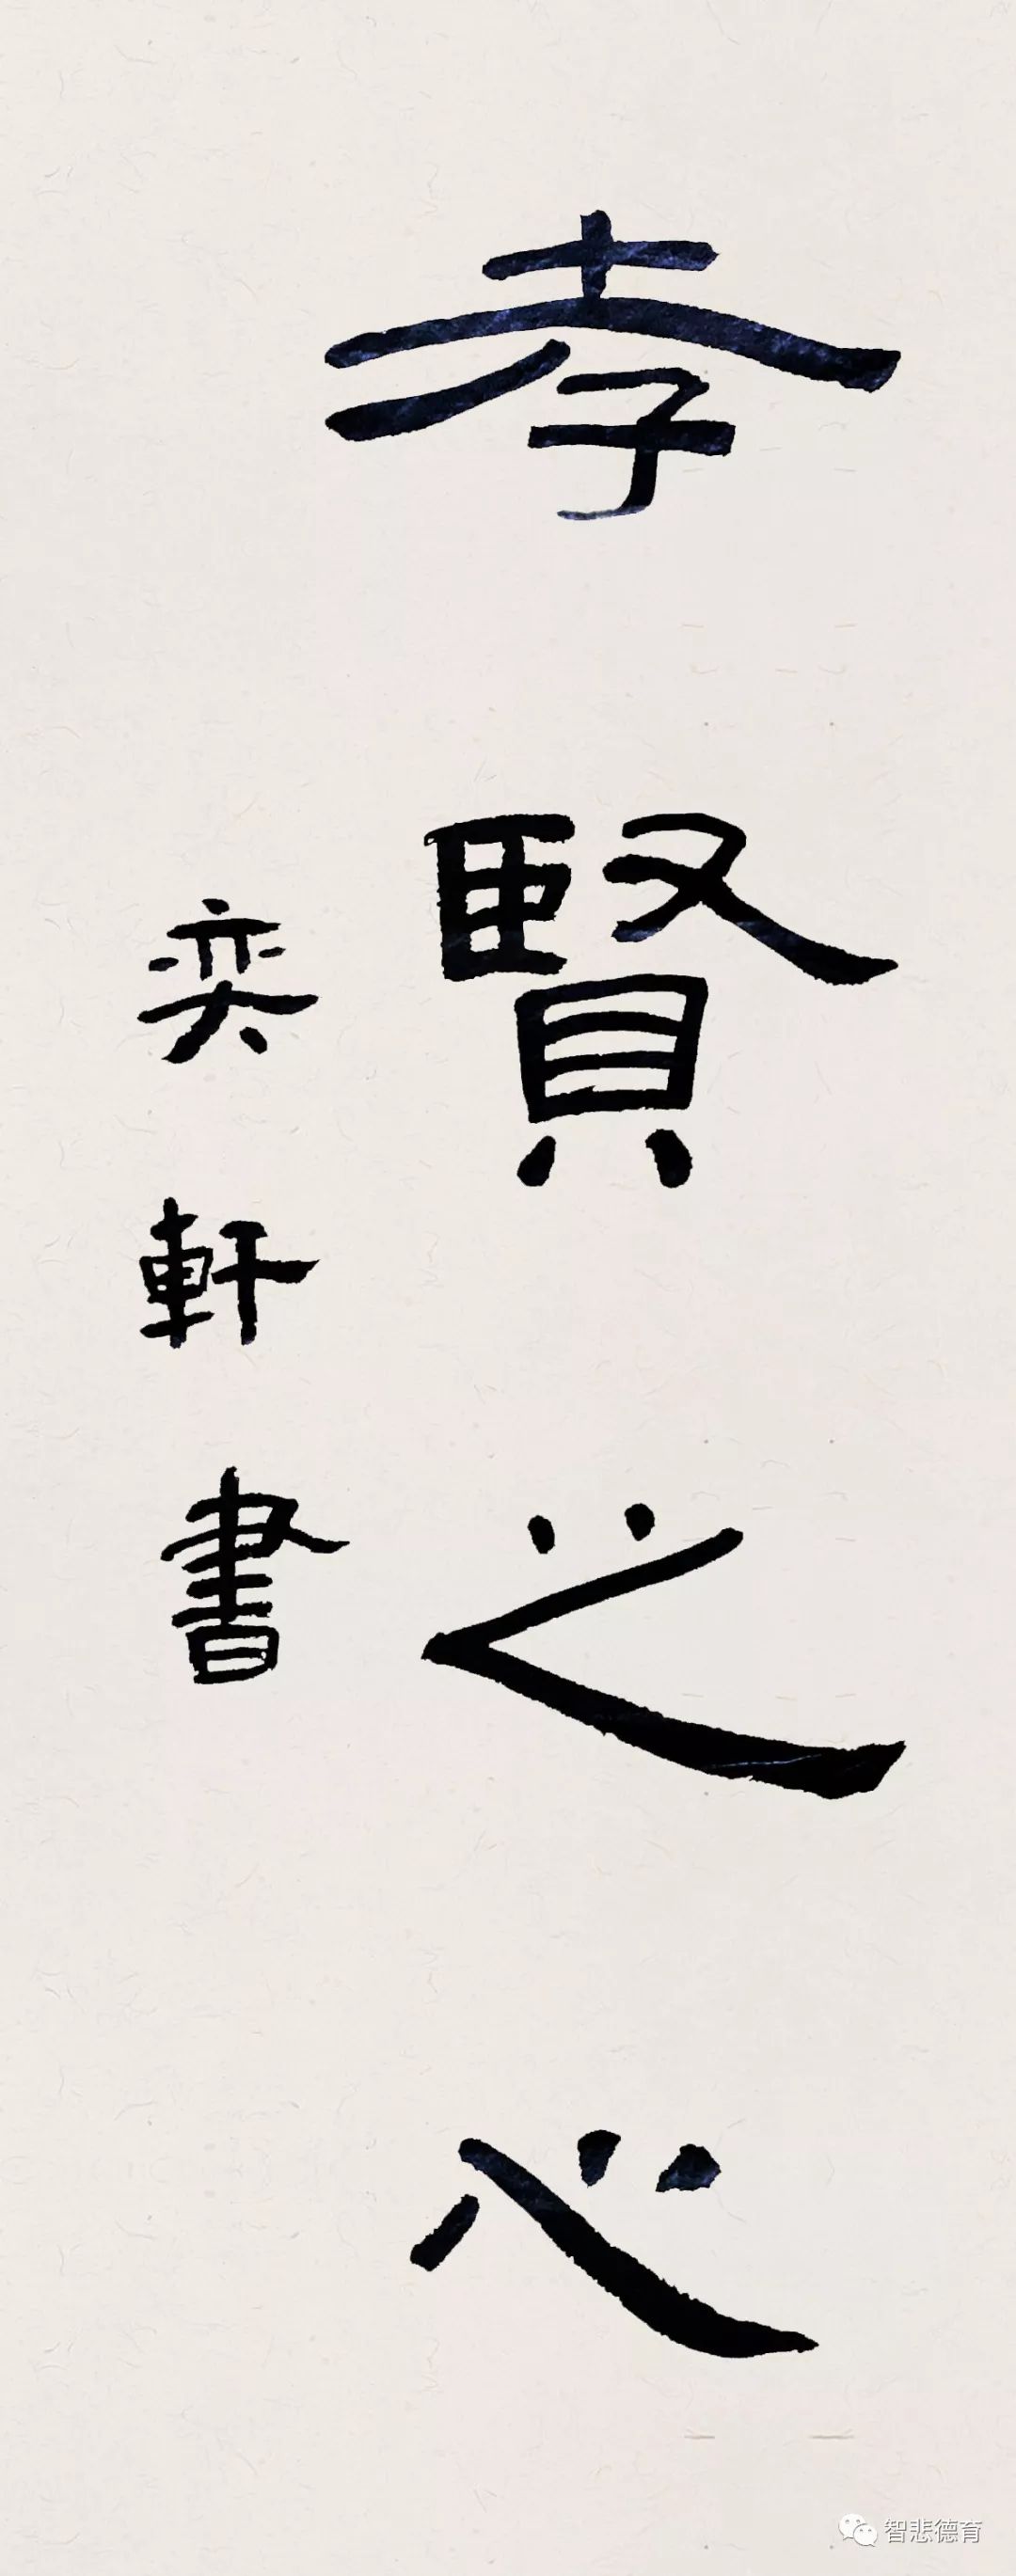 孝賢之心
奕軒書
智悲德育